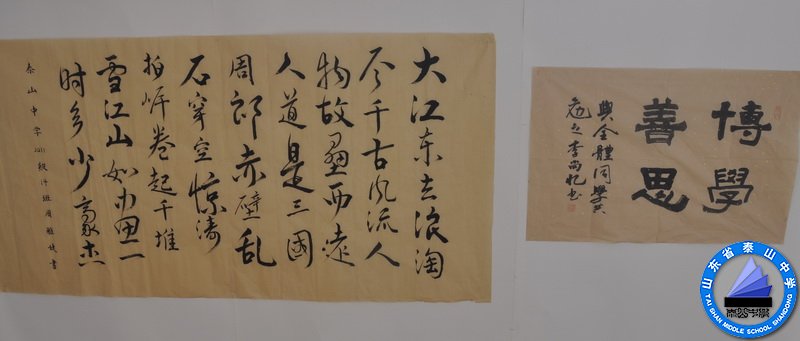 大江东去浪淘
尽千古风流人
物故壘西邊
人道是三國
周郎赤壁乱
石穿空惊涛
拍岸卷起千堆
雪江山如画一
时多少豪杰
泰山中学 级 班周雅 书
博學
善思
與全體同學共
勉之李尚 书
山东省泰山中学
TAI SHAN MIDDLE SCHOOL SHANDONG